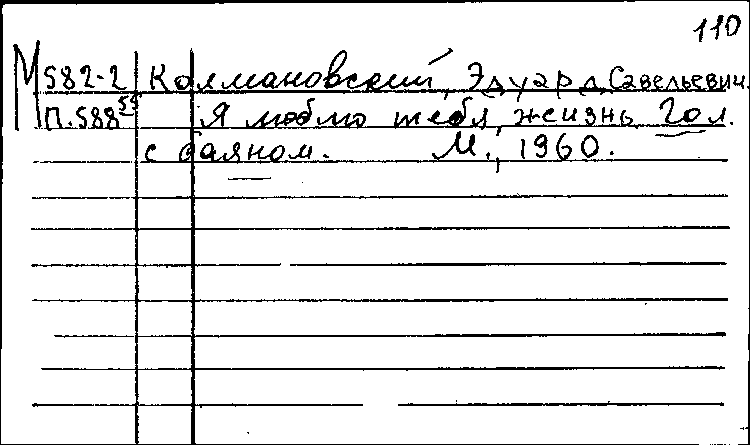 110
М 582-2 Колмановский, Эдуард Савельевич.
П.588⁵⁹ Я люблю тебя, жизнь. Гол.
с баяном. М., 1960.